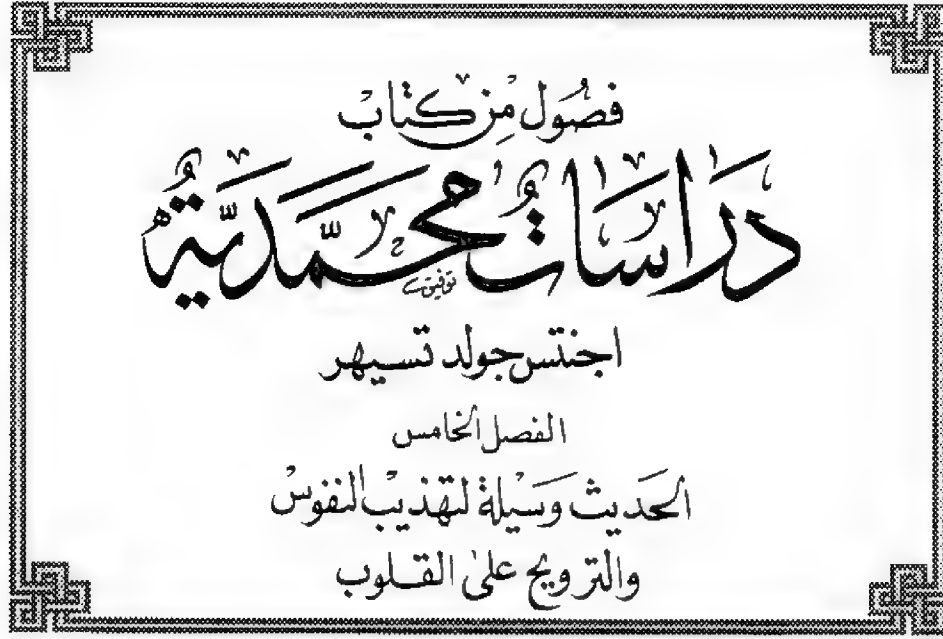 فصُول مِن كتابْ
دَراسَاتٌ محمَّديَّةٌ
توفيق
اجنتس جولد تسيهر
الفصل الخامس
الحَديث وَسيلة لتهذيب النفوسْ
والترويح على القلوب